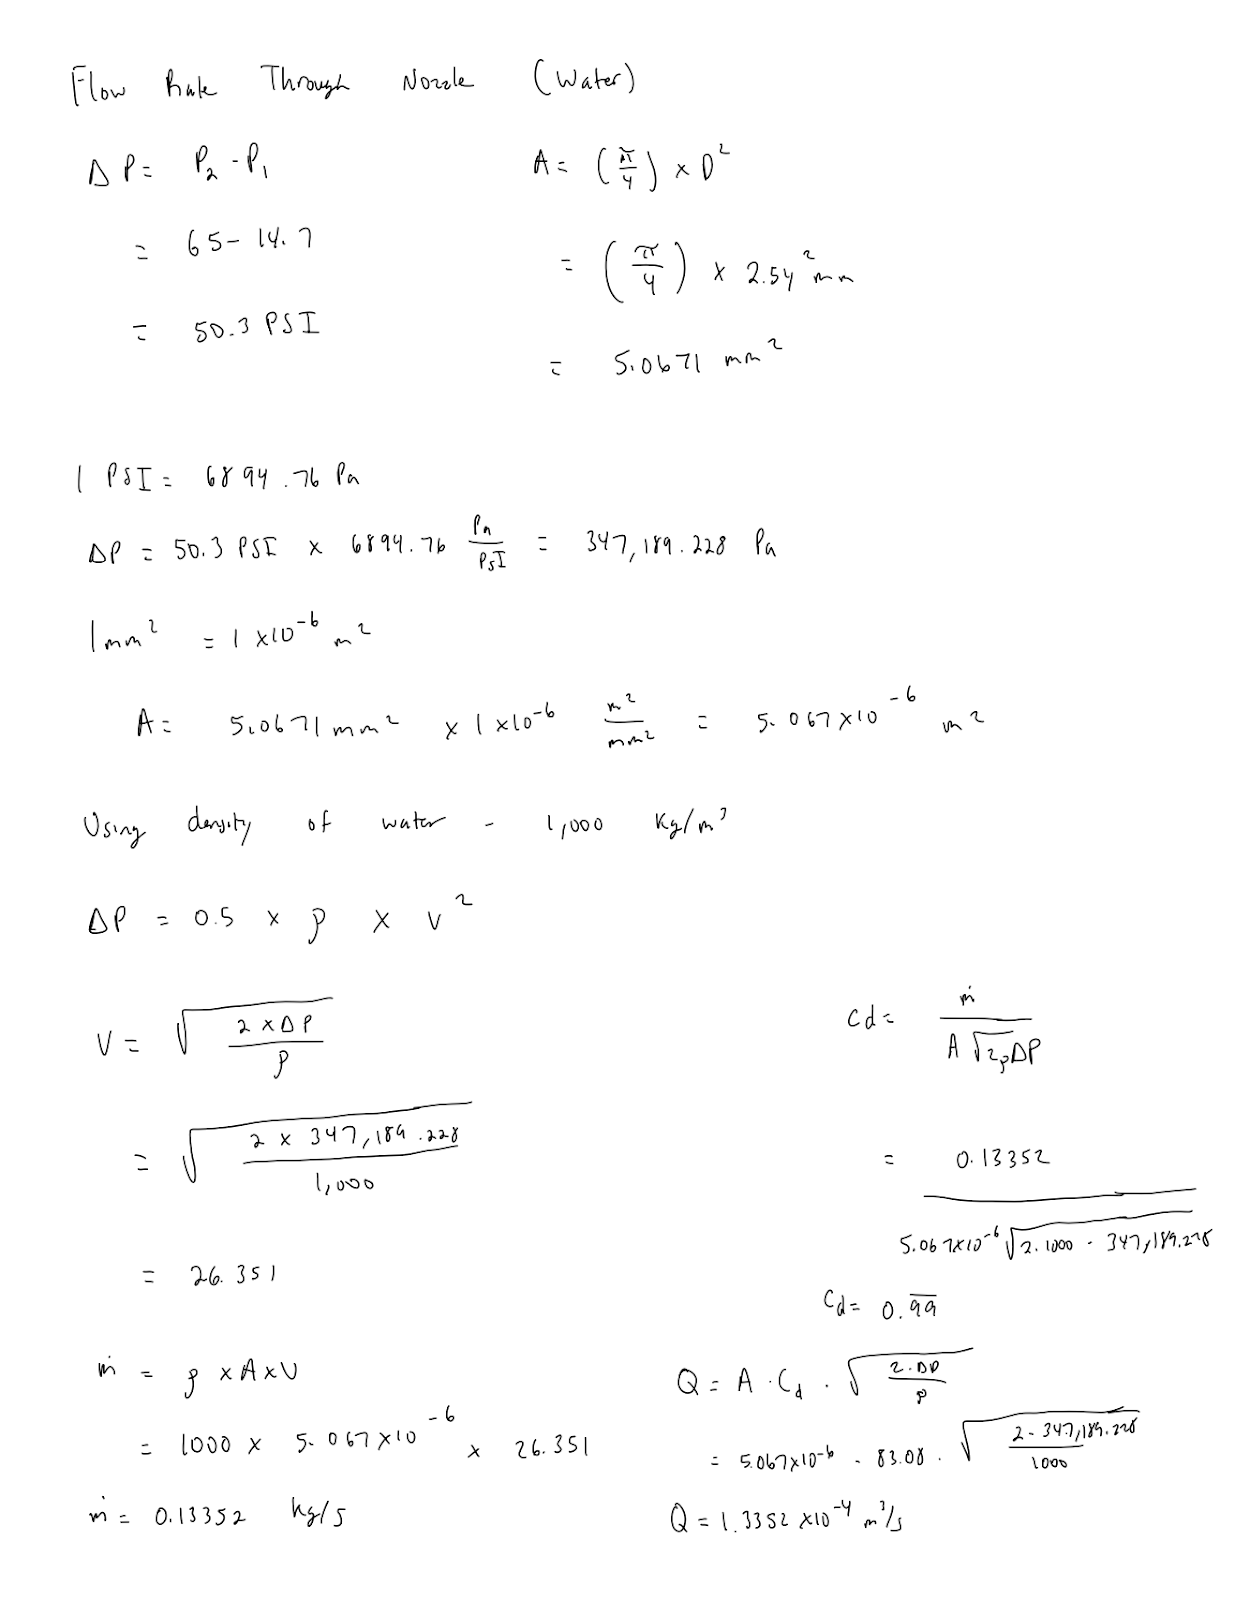 Flow Rate Through Nozzle (Water)
ΔP = P₂ - P₁
= 65 - 14.7
= 50.3 PSI
A = (π/4) × D²
= (π/4) × 2.54² mm
= 5.0671 mm²
1 PSI = 6894.76 Pa
ΔP = 50.3 PSI × 6894.76 Pa/PSI = 347,189.228 Pa
1mm² = 1 × 10⁻⁶ m²
A = 5.0671 mm² × 1 × 10⁻⁶ m²/mm² = 5.067 × 10⁻⁶ m²
Using density of water - 1,000 Kg/m³
ΔP = 0.5 × ρ × V²
V = √(2 × ΔP / ρ)
= √(2 × 347,189.228 / 1,000)
= 26.351
ṁ = ρ × A × V
= 1000 × 5.067 × 10⁻⁶ × 26.351
ṁ = 0.13352 kg/s
Cd = ṁ / A √2ρΔP
= 0.13352 / 5.067×10⁻⁶ √2·1000·347,189.228
Cd = 0.9̅9̅
Q = A · Cd · √(2·ΔP / ρ)
= 5.067×10⁻⁶ · 83.08 · √(2·347,189.228 / 1000)
Q = 1.3352 × 10⁻⁴ m³/s